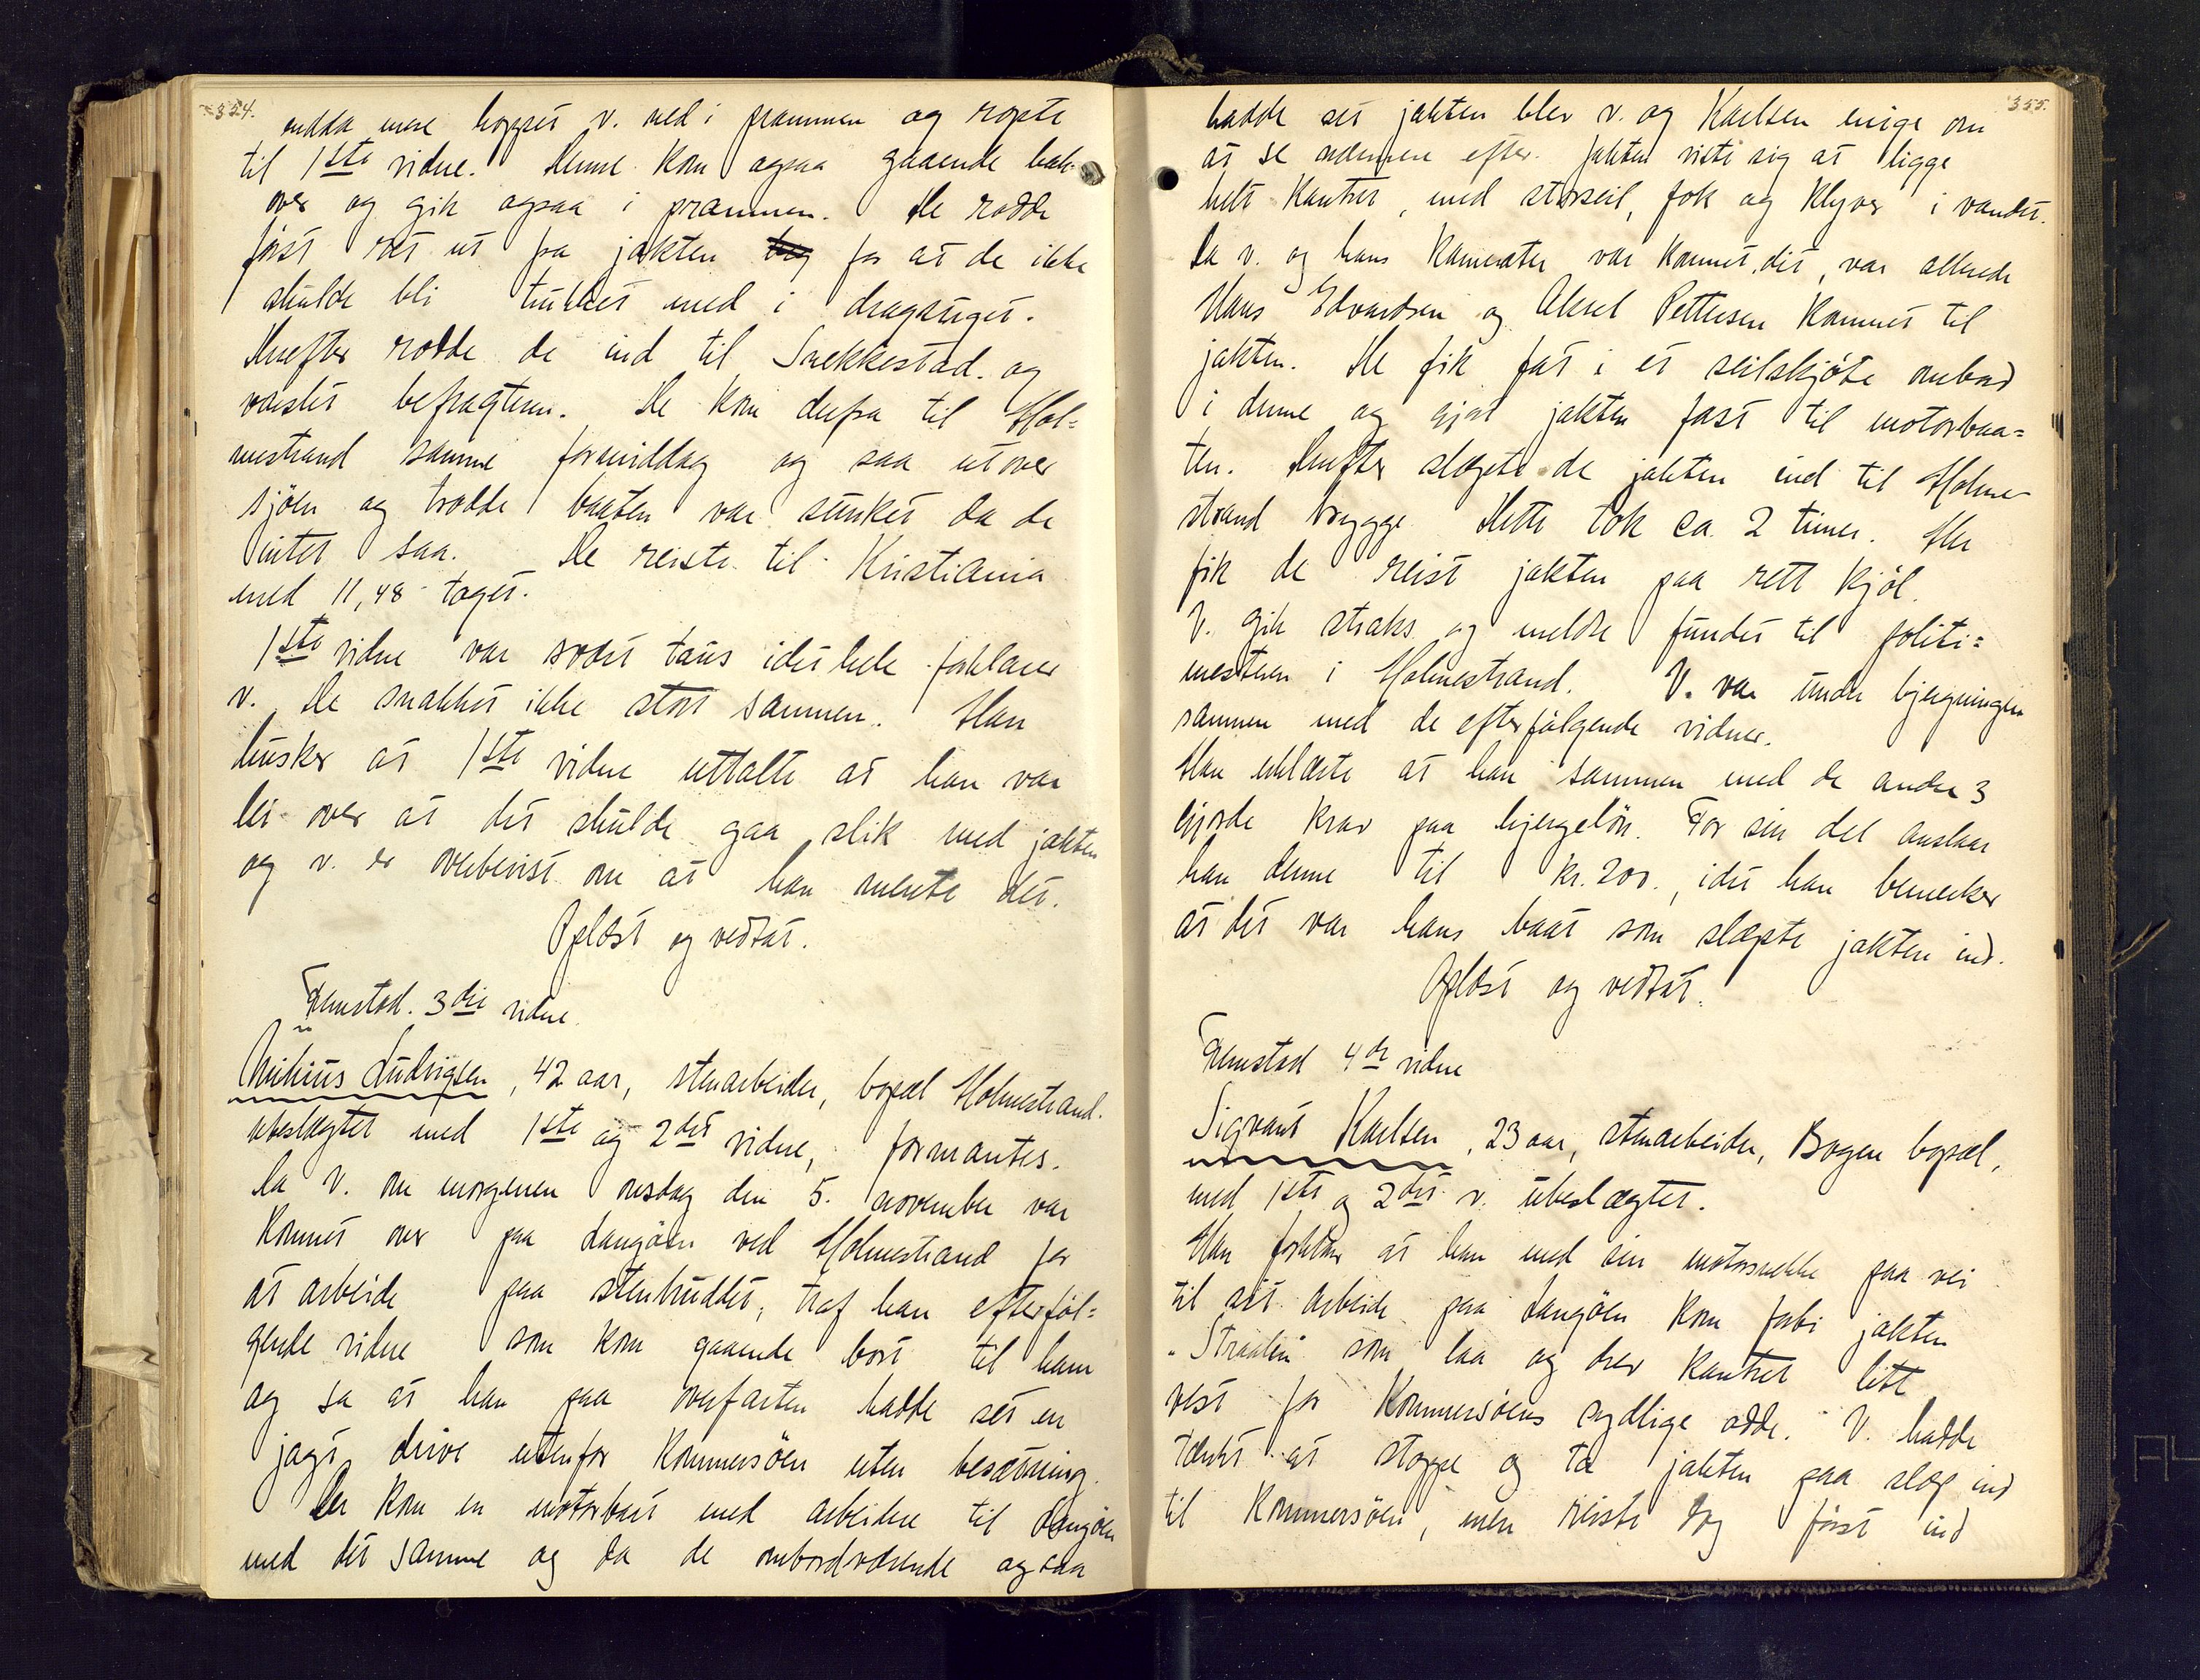 354.
endda mere hoppet v. ned i prammen og ropte
til 1ste vidne. Denne kom ogsaa gaaende bak-
over og gik ogsaa i prammen. De rodde
först ret ut fra jakten for at de ikke
skulde bli trukket med i dragsuget.
Derefter rodde de ind til Snekkestad og
varslet befragteren. De kom derfra til Hol=
mestrand samme formiddag og saa utover
sjöen og trodde baaten var sunket da de
intet saa. De reiste til Kristiania
med 11,48 toget.
1ste vidne var svært taus idet hele forklarer
v. De snakket ikke stort sammen. Han
husker at 1ste vidne uttalte at han var
lei over at det skulde gaa slik med jakten
og v. er overbevist om at han mente det.
Oplæst og vedtat.
Fremstod 3die vidne
Ludvigsen, 42 aar, stenarbeider, bopæl Holmestrand.
ubeslægtet med 1ste og 2det vidne, formantes.
Da V. om morgenen onsdag den 5. november var
kommet over paa Langöen ved Holmestrand for
at arbeide paa stenbruddet, traf han efterföl=
gende vidne som kom gaaende bort til ham
og sa at han paa overfarten hadde set en
jagt drive utenfor Kommersöen uten besætning.
Der kom en motorbaat med arbeidere til Langöen
med det samme og da de ombordværende ogsaa
355.
hadde set jakten blev v. og Karlsen enige om
at se nærmere efter. Jakten viste sig at ligge
helt kantret, med storseil, fok og klyver i vandet.
Da v. og hans kamerater var kommet dit, var allerede
Hans Edvardsen og Aksel Pettersen kommet til
jakten. De fik fat i et seilskjöte ombord
i denne og gjort jakten fast til motorbaa=
ten. Derefter slæpte de jakten ind til Holme-
strand brygge. Dette tok ca. 2 timer. Her
fik de reist jakten paa rett kjöl.
V. gik straks og meldte fundet til politi=
mesteren i Holmestrand. V. var under bjergningen
sammen med de efterfölgende vidner.
Han erklærte at han sammen med de andre 3
gjorde krav paa bjergelön. For sin del anslaar
han denne til kr. 200., idet han bemerker
at det var hans baat som slæpte jakten ind.
Oplæst og vedtat.
Fremstod 4de vidne
Sigvart Karlsen, 23 aar, stenarbeider, Bogen bopæl,
med 1ste og 2det v. ubeslægtet.
Han forklarer at han med sin motorsnekke paa vei
til sit arbeide paa Langöen kom forbi jakten
"Straalen" som laa og drev kantret litt
vest for Kommersöens sydlige odde. V. hadde
tænkt at stoppe og ta jakten paa slæp ind
til Kommersöen, men reiste dog först ind